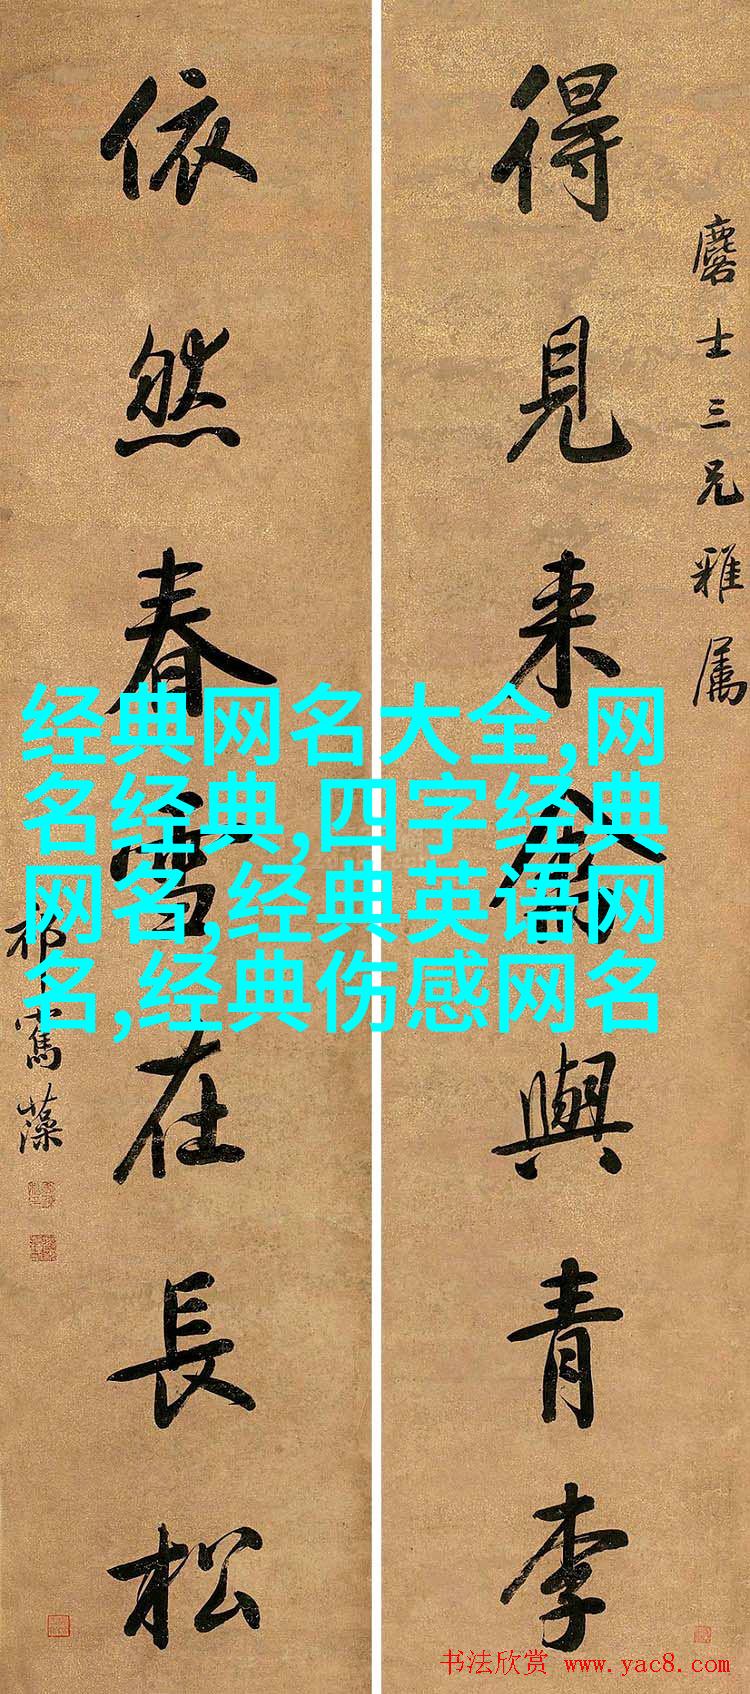 麐士三兄雅属
得見来禽與青李
依然春雪在長松
祁寯藻
经典网名大全,网
名经典,四字经典
网名,经典英语网
名,经典伤感网名
书法欣赏 www.yac8.com